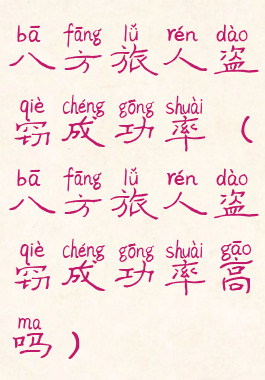 bā fāng lǚ rén dào
八方旅人盗
qiè chéng gōng shuài
窃成功率（
bā fāng lǚ rén dào
八方旅人盗
qiè chéng gōng shuài gāo
窃成功率高
ma
吗）